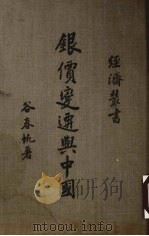 經濟叢書
銀價變遷與中國
谷春帆著
mtoou.info mtoou.info